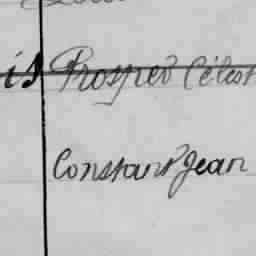 is Prosper Célest
Constant Jean